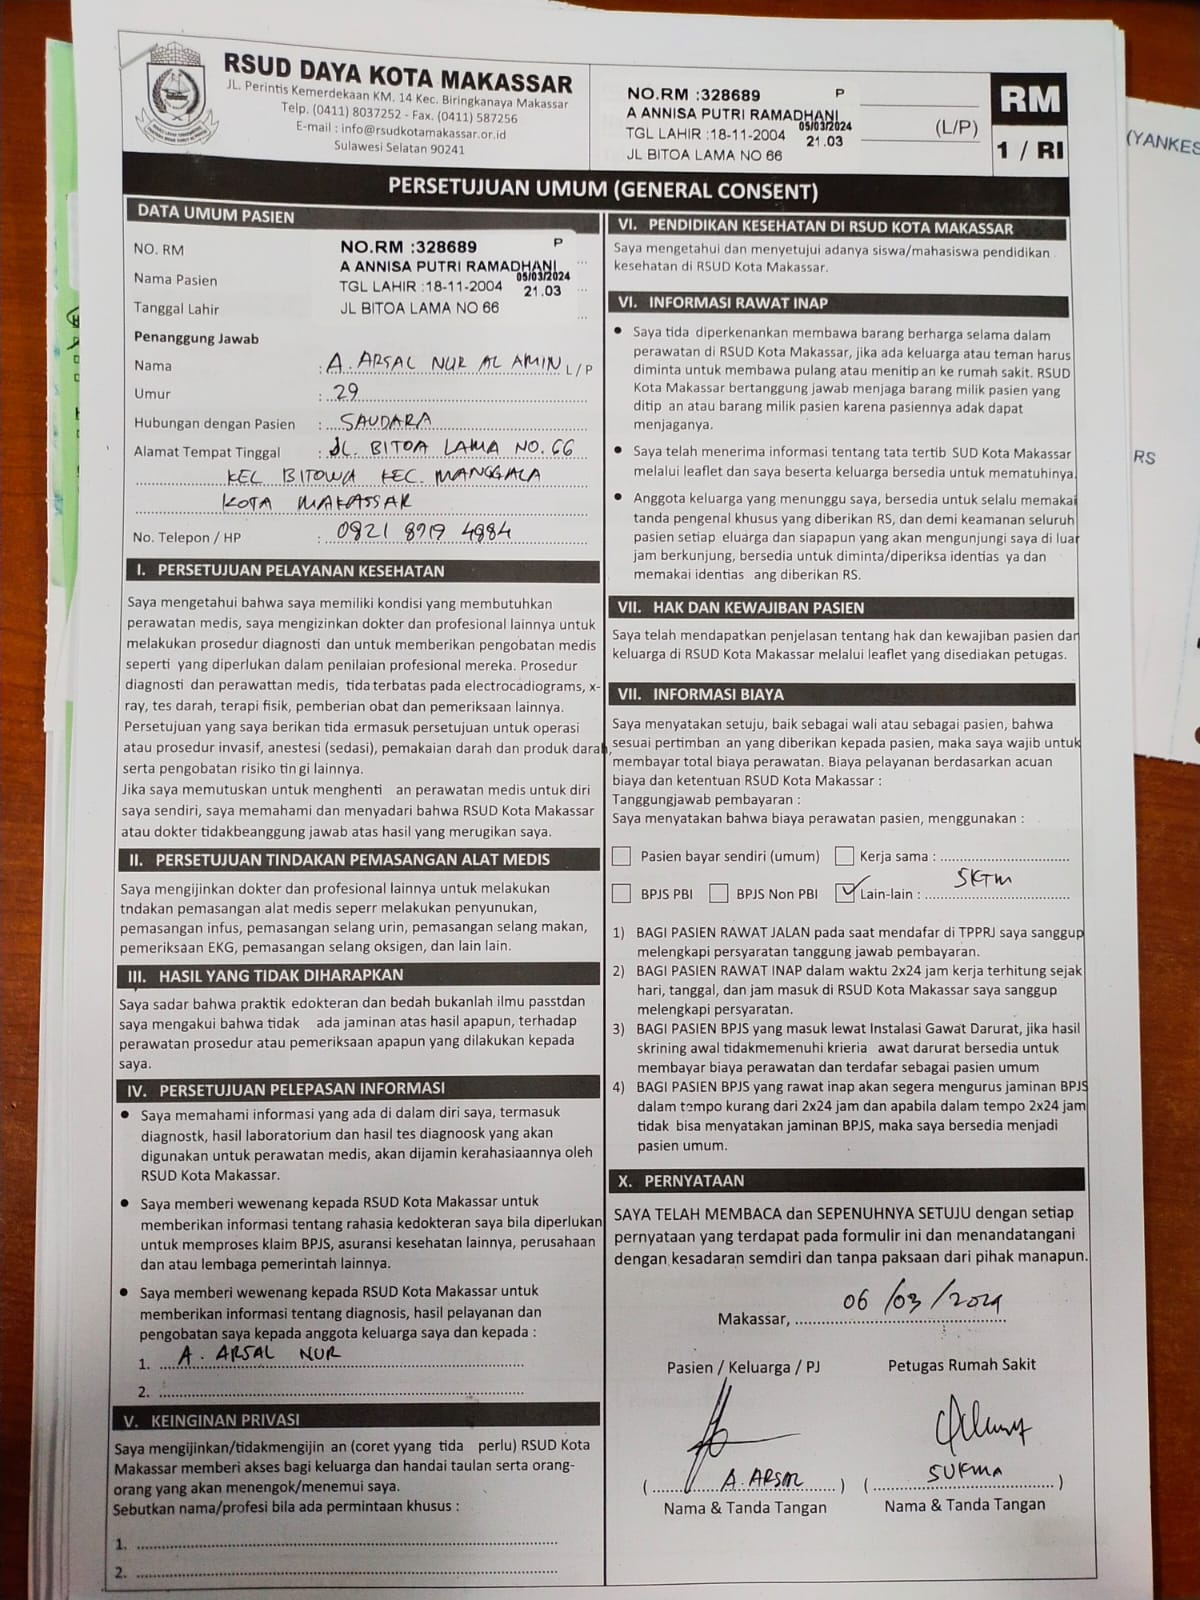 RSUD DAYA KOTA MAKASSAR
JL. Perintis Kemerdekaan KM. 14 Kec. Biringkanaya Makassar
Telp. (0411) 8037252 - Fax. (0411) 587256
E-mail : info@rsudkotamakassar.or.id
Sulawesi Selatan 90241
NO.RM :328689 P
A ANNISA PUTRI RAMADHANI
TGL LAHIR :18-11-2004 05/03/2024 21.03
JL BITOA LAMA NO 66
(L/P)
RM
1 / RI
(YANKES
RS
PERSETUJUAN UMUM (GENERAL CONSENT)
DATA UMUM PASIEN
NO. RM
Nama Pasien
Tanggal Lahir
NO.RM :328689 P
A ANNISA PUTRI RAMADHANI
TGL LAHIR :18-11-2004 05/03/2024 21.03
JL BITOA LAMA NO 66
Penanggung Jawab
Nama : A. ARSAL NUR AL AMIN L/P
Umur : 29
Hubungan dengan Pasien : SAUDARA
Alamat Tempat Tinggal : JL. BITOA LAMA NO. 66
KEL BITOWA KEC. MANGGALA
KOTA MAKASSAR
No. Telepon / HP : 0821 8919 4884
I. PERSETUJUAN PELAYANAN KESEHATAN
Saya mengetahui bahwa saya memiliki kondisi yang membutuhkan
perawatan medis, saya mengizinkan dokter dan profesional lainnya untuk
melakukan prosedur diagnosti dan untuk memberikan pengobatan medis
seperti yang diperlukan dalam penilaian profesional mereka. Prosedur
diagnosti dan perawattan medis, tida terbatas pada electrocadiograms, x-
ray, tes darah, terapi fisik, pemberian obat dan pemeriksaan lainnya.
Persetujuan yang saya berikan tida ermasuk persetujuan untuk operasi
atau prosedur invasif, anestesi (sedasi), pemakaian darah dan produk darah,
serta pengobatan risiko tin gi lainnya.
Jika saya memutuskan untuk menghenti an perawatan medis untuk diri
saya sendiri, saya memahami dan menyadari bahwa RSUD Kota Makassar
atau dokter tidakbeanggung jawab atas hasil yang merugikan saya.
II. PERSETUJUAN TINDAKAN PEMASANGAN ALAT MEDIS
Saya mengijinkan dokter dan profesional lainnya untuk melakukan
tndakan pemasangan alat medis seperr melakukan penyunukan,
pemasangan infus, pemasangan selang urin, pemasangan selang makan,
pemeriksaan EKG, pemasangan selang oksigen, dan lain lain.
III. HASIL YANG TIDAK DIHARAPKAN
Saya sadar bahwa praktik edokteran dan bedah bukanlah ilmu passtdan
saya mengakui bahwa tidak ada jaminan atas hasil apapun, terhadap
perawatan prosedur atau pemeriksaan apapun yang dilakukan kepada
saya.
IV. PERSETUJUAN PELEPASAN INFORMASI
• Saya memahami informasi yang ada di dalam diri saya, termasuk
diagnostk, hasil laboratorium dan hasil tes diagnoosk yang akan
digunakan untuk perawatan medis, akan dijamin kerahasiaannya oleh
RSUD Kota Makassar.
• Saya memberi wewenang kepada RSUD Kota Makassar untuk
memberikan informasi tentang rahasia kedokteran saya bila diperlukan
untuk memproses klaim BPJS, asuransi kesehatan lainnya, perusahaan
dan atau lembaga pemerintah lainnya.
• Saya memberi wewenang kepada RSUD Kota Makassar untuk
memberikan informasi tentang diagnosis, hasil pelayanan dan
pengobatan saya kepada anggota keluarga saya dan kepada :
1. A. ARSAL NUR
2.
V. KEINGINAN PRIVASI
Saya mengijinkan/tidakmengijin an (coret yyang tida perlu) RSUD Kota
Makassar memberi akses bagi keluarga dan handai taulan serta orang-
orang yang akan menengok/menemui saya.
Sebutkan nama/profesi bila ada permintaan khusus :
1.
2.
VI. PENDIDIKAN KESEHATAN DI RSUD KOTA MAKASSAR
Saya mengetahui dan menyetujui adanya siswa/mahasiswa pendidikan
kesehatan di RSUD Kota Makassar.
VI. INFORMASI RAWAT INAP
• Saya tida diperkenankan membawa barang berharga selama dalam
perawatan di RSUD Kota Makassar, jika ada keluarga atau teman harus
diminta untuk membawa pulang atau menitip an ke rumah sakit. RSUD
Kota Makassar bertanggung jawab menjaga barang milik pasien yang
ditip an atau barang milik pasien karena pasiennya adak dapat
menjaganya.
• Saya telah menerima informasi tentang tata tertib SUD Kota Makassar
melalui leaflet dan saya beserta keluarga bersedia untuk mematuhinya.
• Anggota keluarga yang menunggu saya, bersedia untuk selalu memakai
tanda pengenal khusus yang diberikan RS, dan demi keamanan seluruh
pasien setiap eluarga dan siapapun yang akan mengunjungi saya di luar
jam berkunjung, bersedia untuk diminta/diperiksa identias ya dan
memakai identias ang diberikan RS.
VII. HAK DAN KEWAJIBAN PASIEN
Saya telah mendapatkan penjelasan tentang hak dan kewajiban pasien dan
keluarga di RSUD Kota Makassar melalui leaflet yang disediakan petugas.
VII. INFORMASI BIAYA
Saya menyatakan setuju, baik sebagai wali atau sebagai pasien, bahwa
sesuai pertimban an yang diberikan kepada pasien, maka saya wajib untuk
membayar total biaya perawatan. Biaya pelayanan berdasarkan acuan
biaya dan ketentuan RSUD Kota Makassar :
Tanggungjawab pembayaran :
Saya menyatakan bahwa biaya perawatan pasien, menggunakan :
Pasien bayar sendiri (umum) Kerja sama :
BPJS PBI BPJS Non PBI Lain-lain : SKTM
1) BAGI PASIEN RAWAT JALAN pada saat mendafar di TPPRJ saya sanggup
melengkapi persyaratan tanggung jawab pembayaran.
2) BAGI PASIEN RAWAT INAP dalam waktu 2x24 jam kerja terhitung sejak
hari, tanggal, dan jam masuk di RSUD Kota Makassar saya sanggup
melengkapi persyaratan.
3) BAGI PASIEN BPJS yang masuk lewat Instalasi Gawat Darurat, jika hasil
skrining awal tidakmemenuhi krieria awat darurat bersedia untuk
membayar biaya perawatan dan terdafar sebagai pasien umum
4) BAGI PASIEN BPJS yang rawat inap akan segera mengurus jaminan BPJS
dalam tempo kurang dari 2x24 jam dan apabila dalam tempo 2x24 jam
tidak bisa menyatakan jaminan BPJS, maka saya bersedia menjadi
pasien umum.
X. PERNYATAAN
SAYA TELAH MEMBACA dan SEPENUHNYA SETUJU dengan setiap
pernyataan yang terdapat pada formulir ini dan menandatangani
dengan kesadaran semdiri dan tanpa paksaan dari pihak manapun.
Makassar, 06 /03 /2024
Pasien / Keluarga / PJ Petugas Rumah Sakit
( A. ARSAL ) ( SUKMA )
Nama & Tanda Tangan Nama & Tanda Tangan